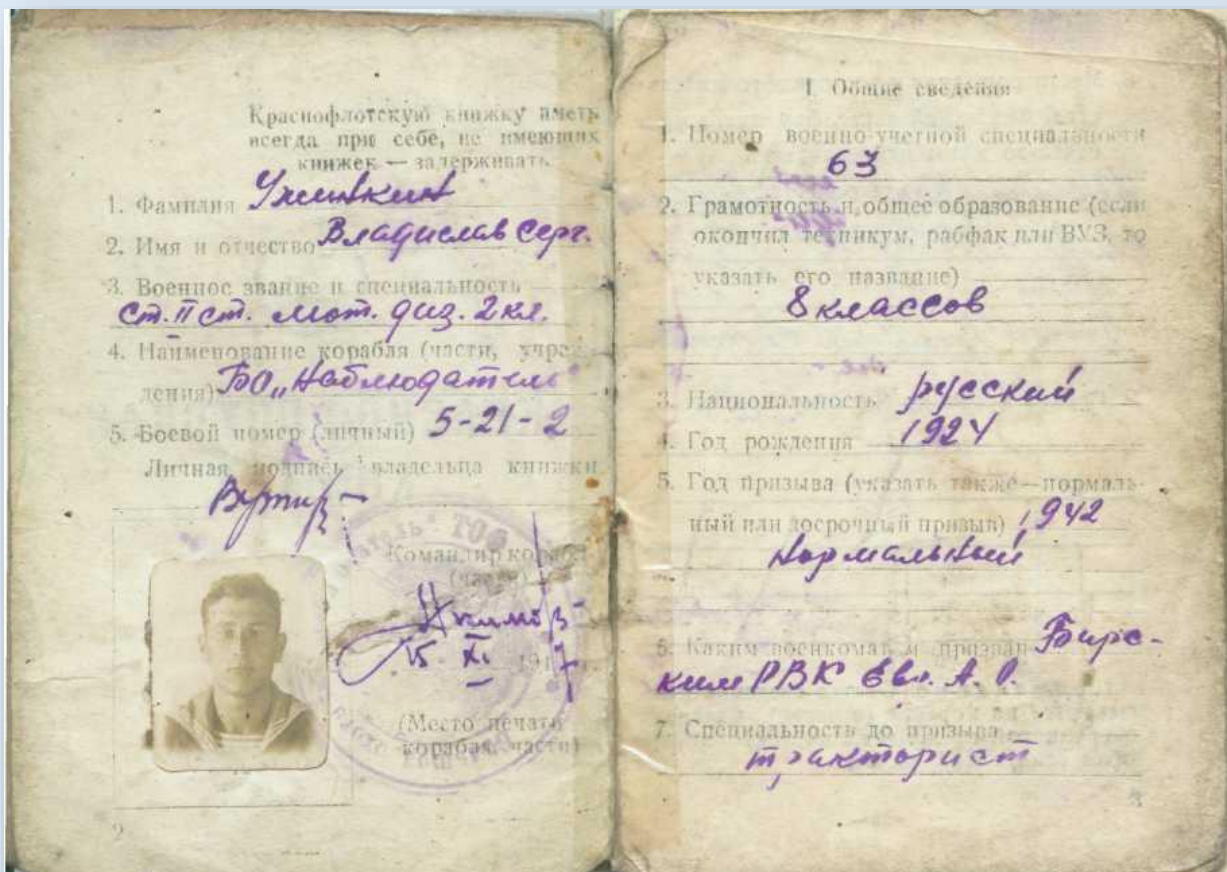 Краснофлотскую книжку иметь
всегда при себе, не имеющих
книжек — задерживать.
1. Фамилия
2. Имя и отчество Владислав Серг.
3. Военное звание и специальность
ст. II ст. мот. диз. 2 кл.
4. Наименование корабля (части, учреж-
дения) БО „Наблюдатель"
5. Боевой номер (личный) 5-21-2
Личная подпись владельца книжки
Командир корабля
(части)
15. XI 194
(Место печати
корабля, части)
2
I. Общие сведения
1. Номер военно-учетной специальности
63
2. Грамотность и общее образование (если
окончил техникум, рабфак или ВУЗ, то
указать его название)
8 классов
3. Национальность русский
4. Год рождения 1924
5. Год призыва (указать также—нормаль-
ный или досрочный призыв) 1942
Нормальный
6. Каким военкоматом призван Бирс-
ким РВК Евр. А. О.
7. Специальность до призыва
тракторист
3